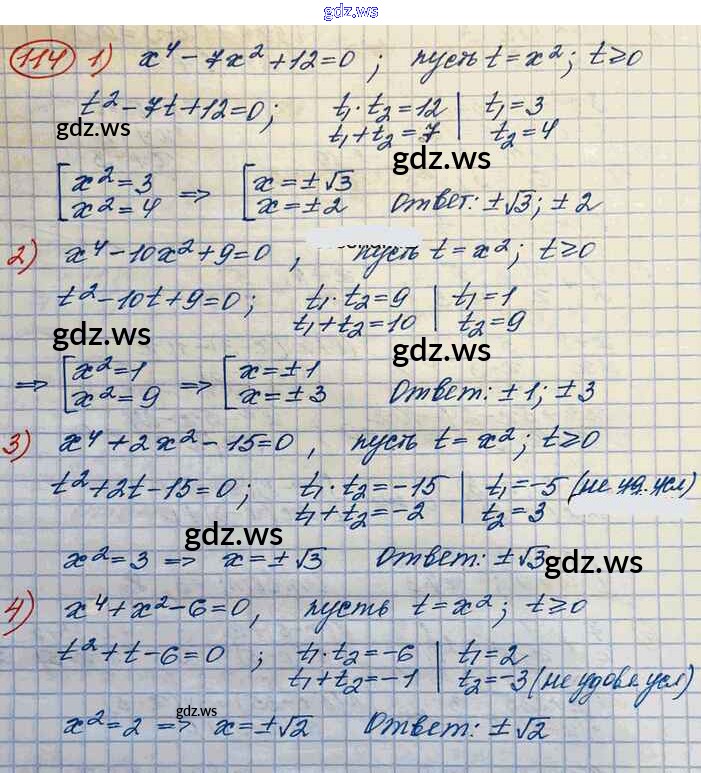 gdz.ws
114 1) x⁴ - 7x² + 12 = 0 ; пусть t = x² ; t ≥ 0
t² - 7t + 12 = 0 ; t₁ · t₂ = 12 | t₁ = 3
gdz.ws t₁ + t₂ = 7 | t₂ = 4
gdz.ws
[ x² = 3 => [ x = ± √3
x² = 4 x = ± 2 Ответ: ± √3 ; ± 2
2) x⁴ - 10x² + 9 = 0 , пусть t = x² ; t ≥ 0
t² - 10t + 9 = 0 ; t₁ · t₂ = 9 | t₁ = 1
t₁ + t₂ = 10 | t₂ = 9
gdz.ws gdz.ws
=> [ x² = 1 => [ x = ± 1
x² = 9 x = ± 3 Ответ: ± 1 ; ± 3
3) x⁴ + 2x² - 15 = 0 , пусть t = x² ; t ≥ 0
t² + 2t - 15 = 0 ; t₁ · t₂ = -15 | t₁ = -5 (не уд. усл)
t₁ + t₂ = -2 | t₂ = 3
gdz.ws
x² = 3 => x = ± √3 Ответ: ± √3
gdz.ws
4) x⁴ + x² - 6 = 0 , пусть t = x² ; t ≥ 0
t² + t - 6 = 0 ; t₁ · t₂ = -6 | t₁ = 2
t₁ + t₂ = -1 | t₂ = -3 (не удовл усл)
gdz.ws
x² = 2 => x = ± √2 Ответ: ± √2